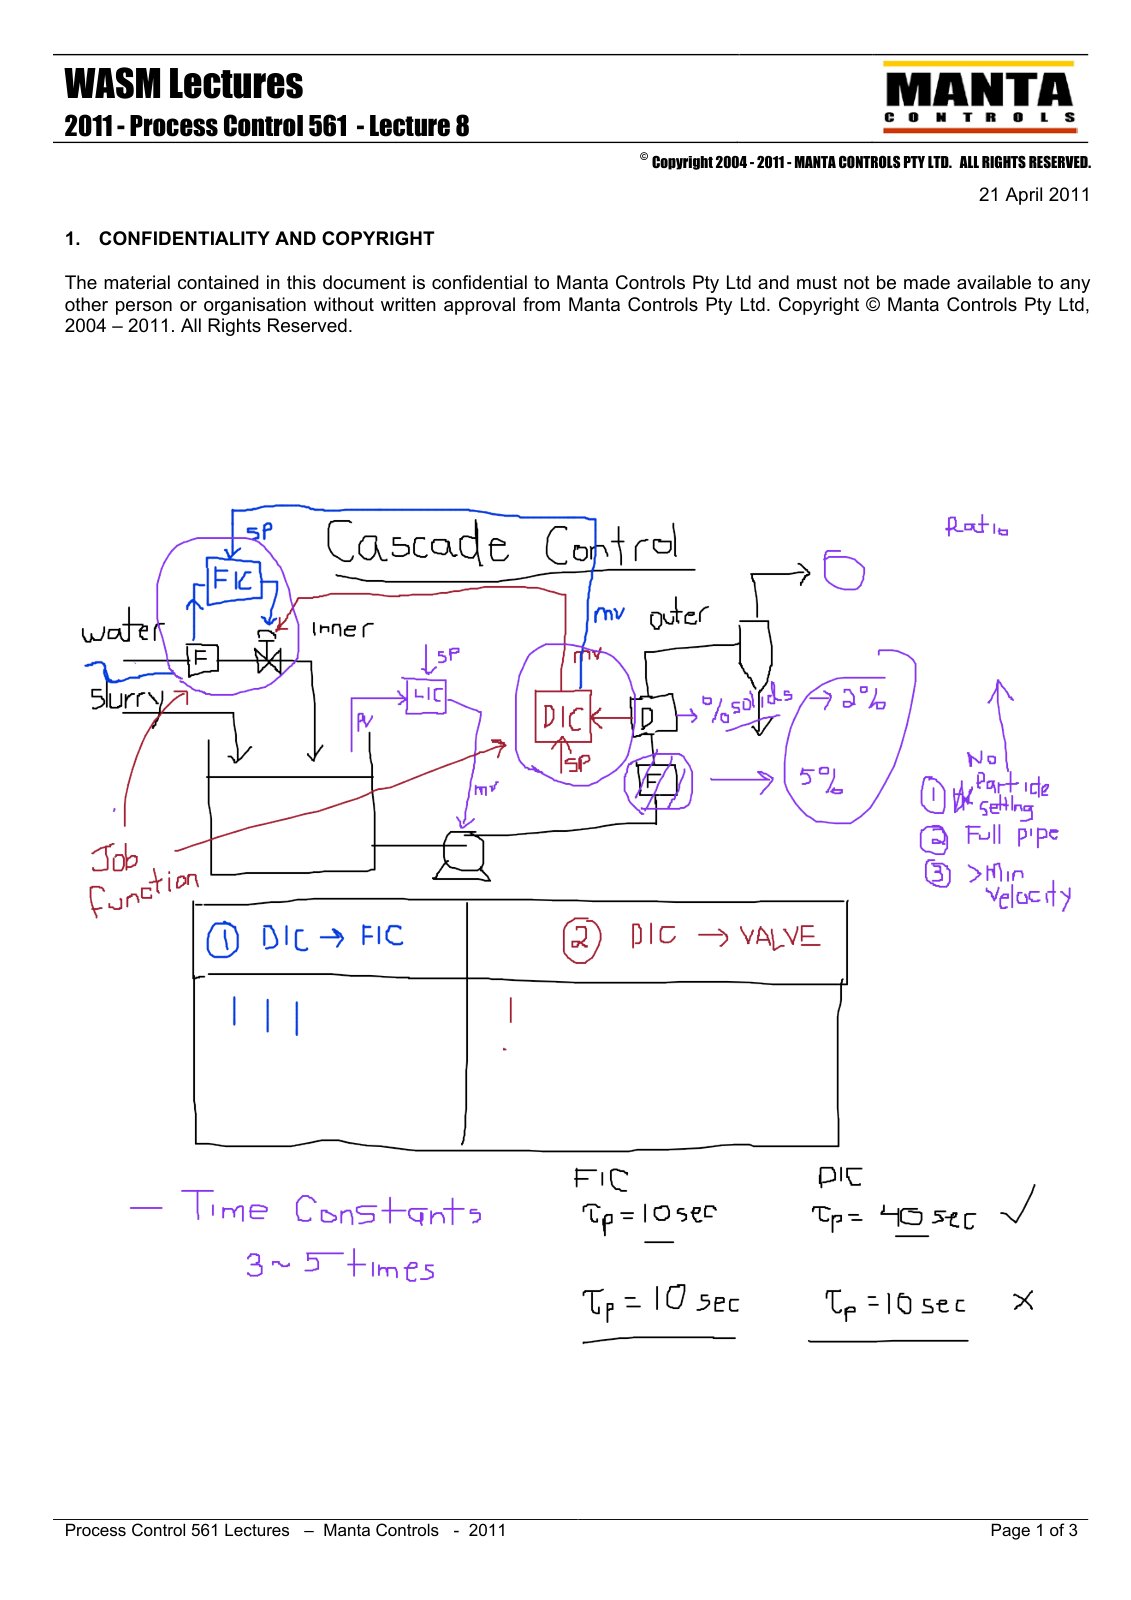 WASM Lectures
2011 - Process Control 561 - Lecture 8
MANTA
CONTROLS
© Copyright 2004 - 2011 - MANTA CONTROLS PTY LTD. ALL RIGHTS RESERVED.
21 April 2011
1. CONFIDENTIALITY AND COPYRIGHT
The material contained in this document is confidential to Manta Controls Pty Ltd and must not be made available to any
other person or organisation without written approval from Manta Controls Pty Ltd. Copyright © Manta Controls Pty Ltd,
2004 – 2011. All Rights Reserved.
Ratio
SP
Cascade Control
FIC
mv
outer
water
inner
F
SP
mv
Slurry
LIC
PV
DIC
D
% solids → 2%
SP
mv
F
5%
No
① Particle
settling
② Full pipe
③ >Min
Velocity
Job
function
① DIC → FIC
② DIC → VALVE
| | |
|
FIC
DIC
— Time Constants
τp = 10 sec
τp = 40 sec ✓
3 ~ 5 times
τp = 10 sec
τp = 10 sec ×
Process Control 561 Lectures – Manta Controls - 2011
Page 1 of 3